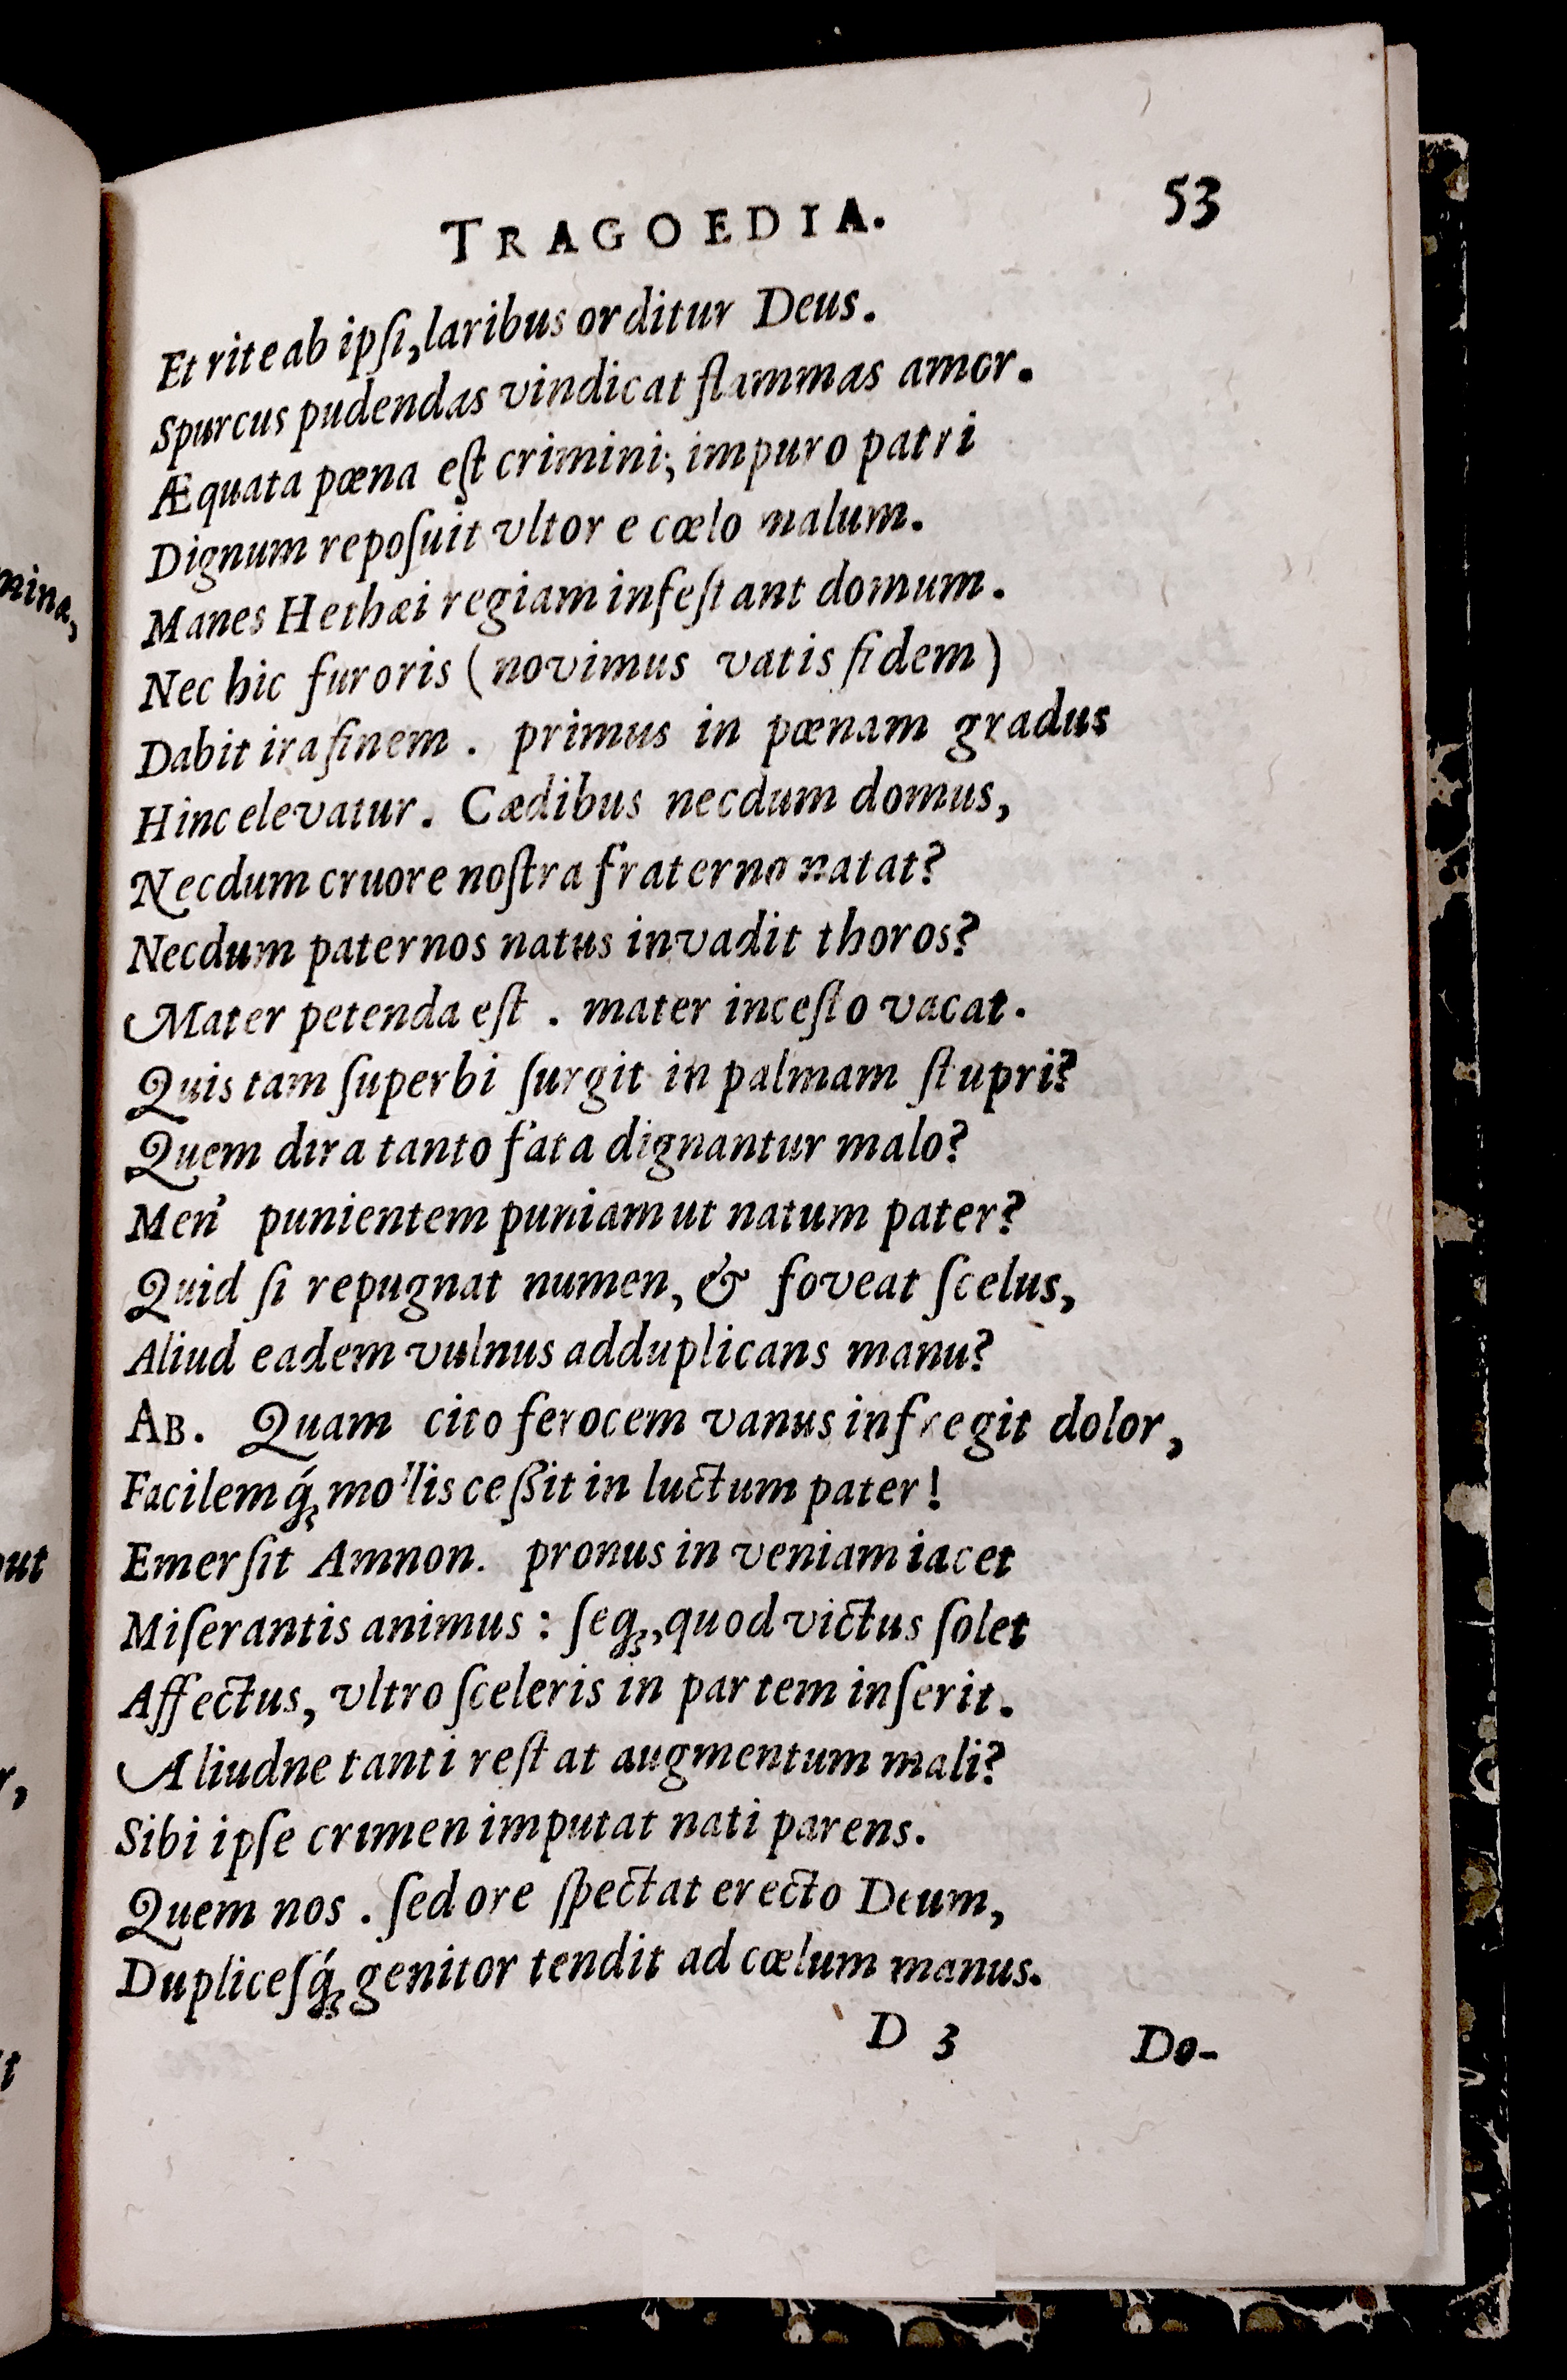 TRAGOEDIA. 53
Et rite ab ipſi, laribus orditur Deus.
Spurcus pudendas vindicat flammas amor.
Æquata pœna eſt crimini; impuro patri
Dignum repoſuit vltor e cœlo malum.
Manes Hethæi regiam infeſtant domum.
Nec hic furoris (novimus vatis fidem)
Dabit ira finem. primus in pœnam gradus
Hinc elevatur. Cædibus necdum domus,
Necdum cruore noſtra fraterno natat?
Necdum paternos natus invadit thoros?
Mater petenda eſt. mater inceſto vacat.
Quis tam ſuperbi ſurgit in palmam ſtupri?
Quem dira tanto fata dignantur malo?
Men' punientem puniam ut natum pater?
Quid ſi repugnat numen, & foveat ſcelus,
Aliud eadem vulnus adduplicans manu?
AB. Quam cito ferocem vanus infregit dolor,
Facilemq́; mollis ceßit in luctum pater!
Emerſit Amnon. pronus in veniam iacet
Miſerantis animus: ſeq;, quod victus ſolet
Affectus, vltro ſceleris in partem inſerit.
Aliudne tanti reſtat augmentum mali?
Sibi ipſe crimen imputat nati parens.
Quem nos. ſed ore ſpectat erecto Deum,
Dupliceſq́; genitor tendit ad cœlum manus.
D 3 Do-
mina,
ut
r,
t